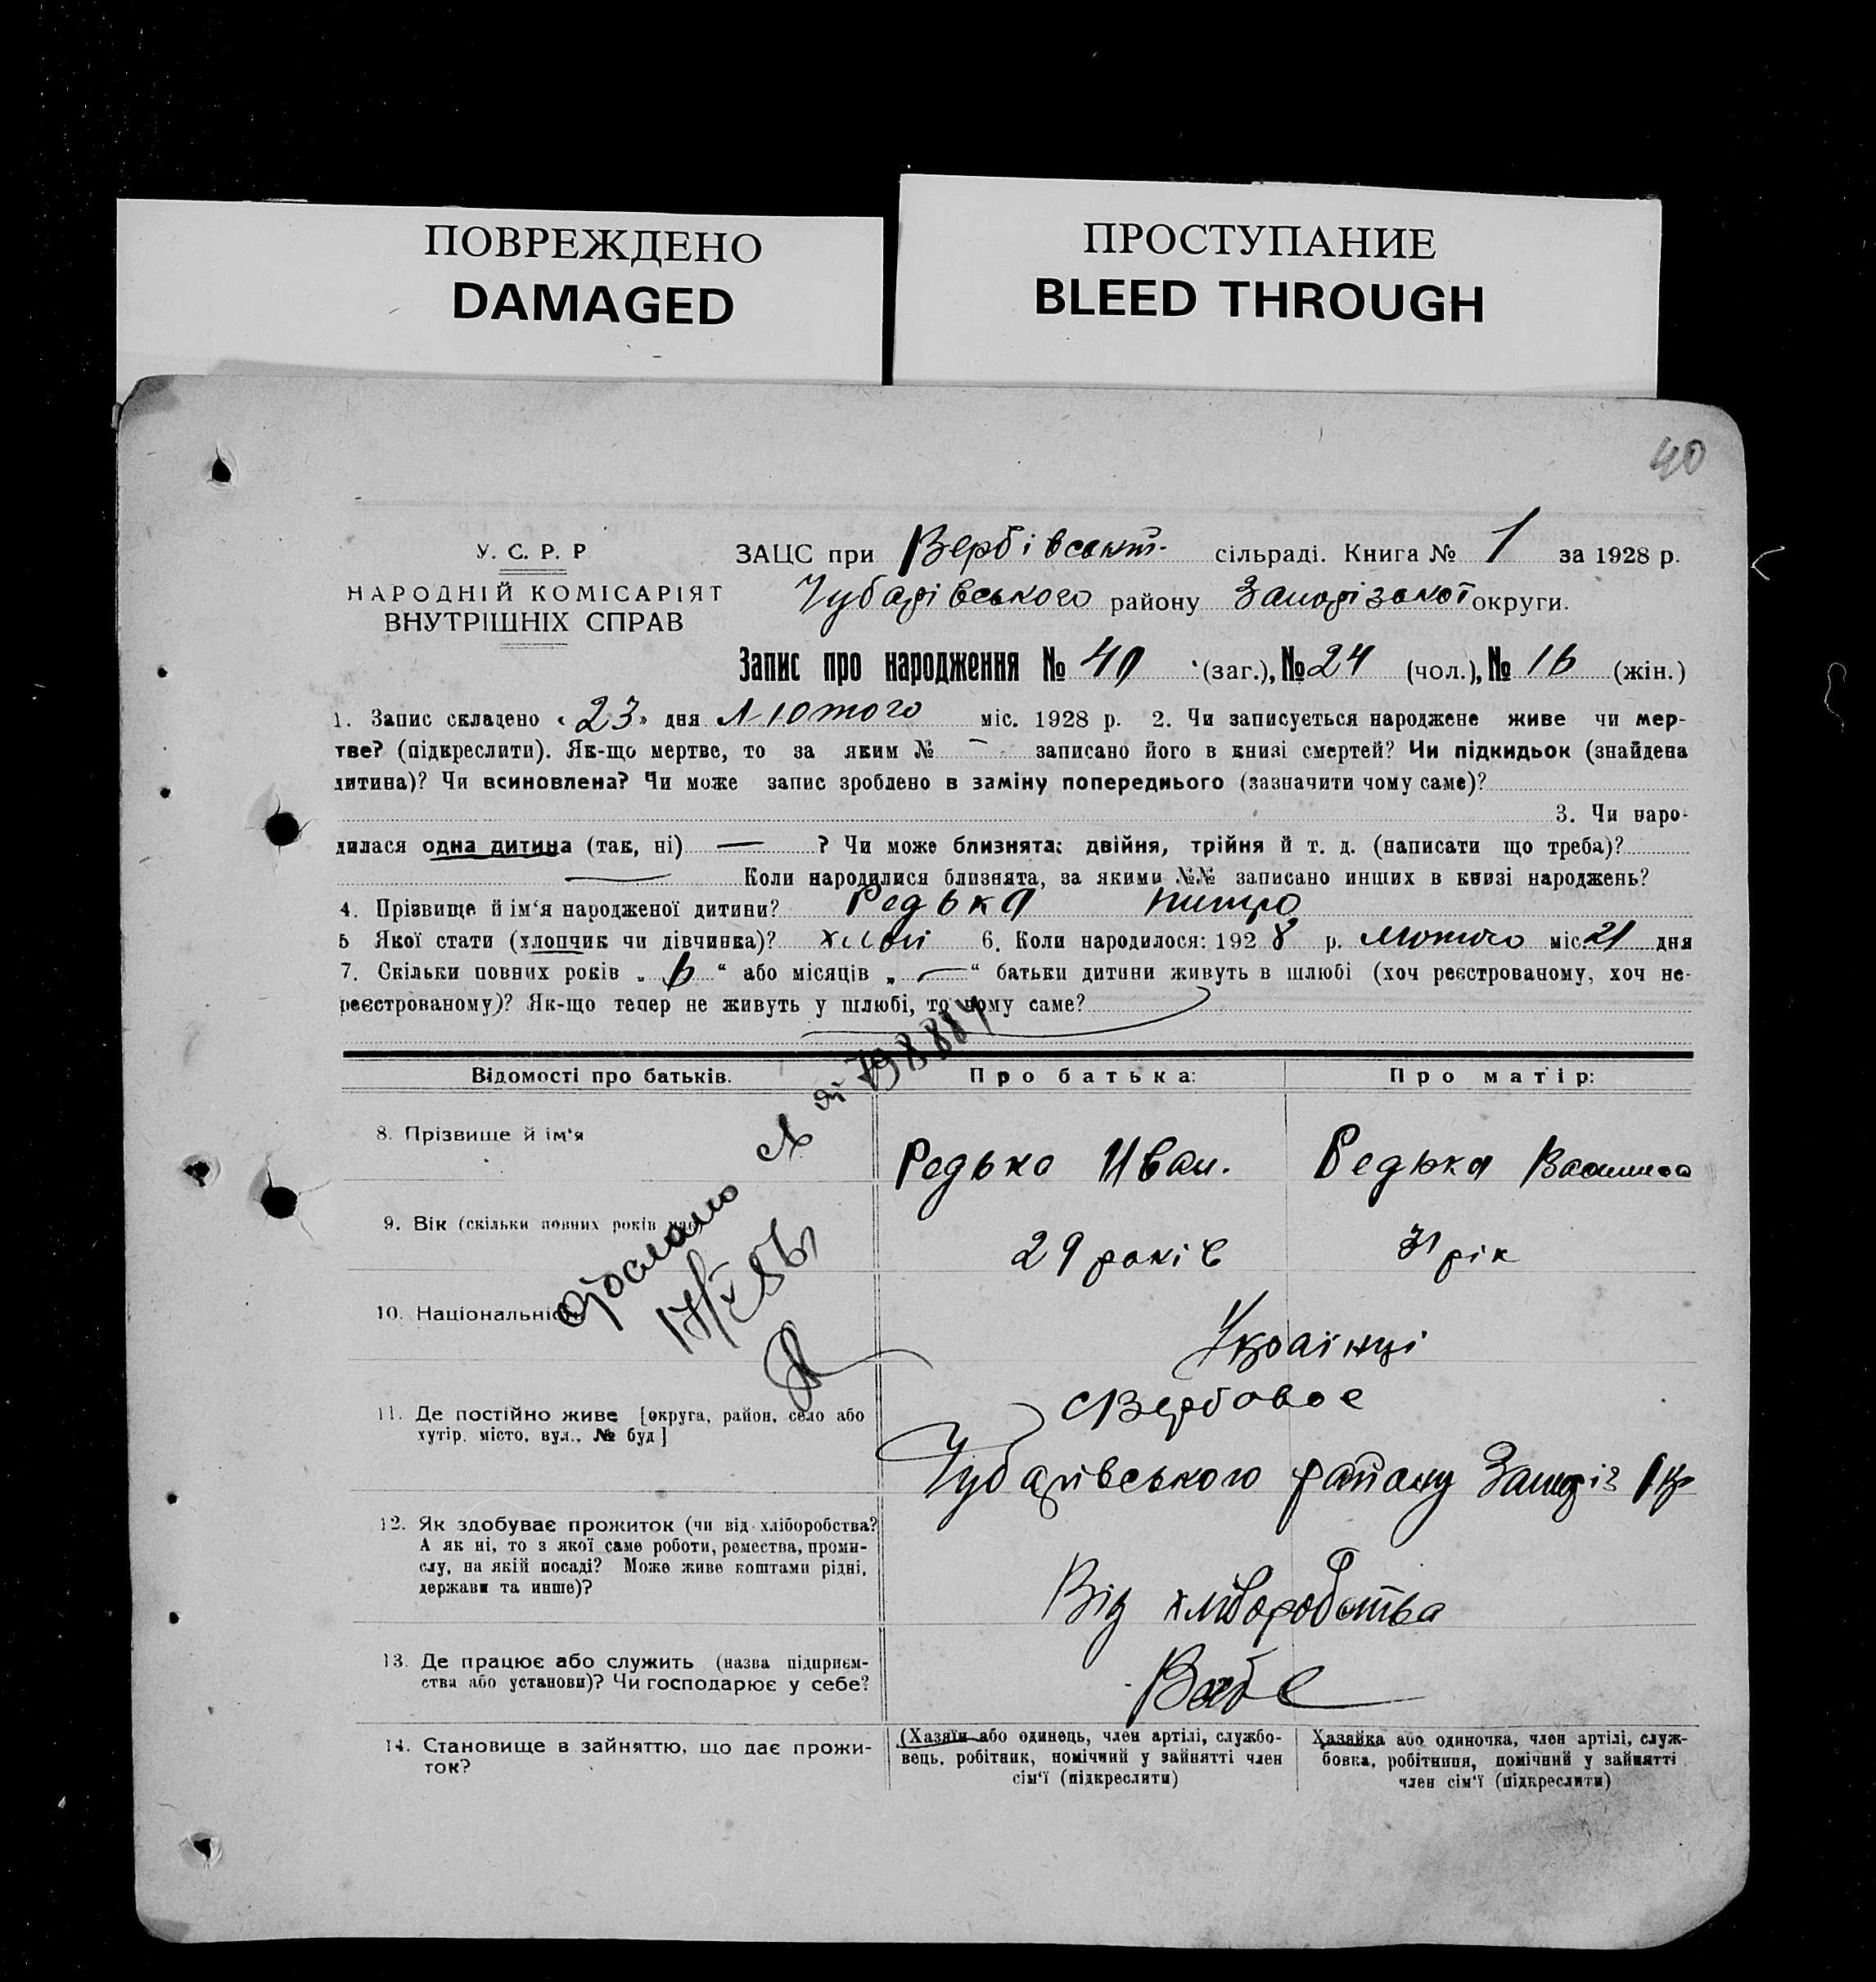 ПОВРЕЖДЕНО
DAMAGED
ПРОСТУПАНИЕ
BLEED THROUGH
40
У. С. Р. Р
НАРОДНІЙ КОМІСАРІЯТ
ВНУТРІШНІХ СПРАВ
ЗАЦС при Вербівськ. сільраді. Книга № 1 за 1928 р.
Чубарівського району Запорізької округи.
Запис про народження № 40 (заг.), № 24 (чол.), № 16 (жін.)
1. Запис складено «23» дня Лютого міс. 1928 р. 2. Чи записується народжене живе чи мер-
тве? (підкреслити). Як-що мертве, то за яким № - записано його в книзі смертей? Чи підкидьок (знайдена
дитина)? Чи всиновлена? Чи може запис зроблено в заміну попереднього (зазначити чому саме)?
3. Чи наро-
дилася одна дитина (так, ні) — ? Чи може близнята: двійня, трійня й т. д. (написати що треба)?
— Коли народилися близнята, за якими №№ записано инших в книзі народжень?
4. Прізвище й ім'я народженої дитини? Редька
5 Якої стати (хлопчик чи дівчинка)? 6. Коли народилося: 1928 р. Лютого міс. 21 дня
7. Скільки повних років „ 6 “ або місяців „ — “ батьки дитини живуть в шлюбі (хоч реєстрованому, хоч не-
реєстрованому)? Як-що тепер не живуть у шлюбі, то чому саме?
Відомості про батьків.
Про батька:
Про матір:
8. Прізвище й ім'я
Редько Иван.
Редька Василиса
9. Вік (скільки повних років має)
29 років
31 рік
10. Національність
Українці
11. Де постійно живе [округа, район, село або
хутір, місто, вул., № буд]
с Вербовое
Чубарівського району Запоріз Окр
12. Як здобуває прожиток (чи від хліборобства?
А як ні, то з якої саме роботи, ремества, проми-
слу, на якій посаді? Може живе коштами рідні,
держави та инше)?
Від хліборобства
13. Де працює або служить (назва підприєм-
ства або установи)? Чи господарює у себе?
14. Становище в зайняттю, що дає прожи-
ток?
(Хазяїн або одинець, член артілі, службо-
вець, робітник, помічний у зайнятті член
сім'ї (підкреслити)
Хазяйка або одиночка, член артілі, служ-
бовка, робітниця, помічний у зайнятті
член сім'ї (підкреслити)